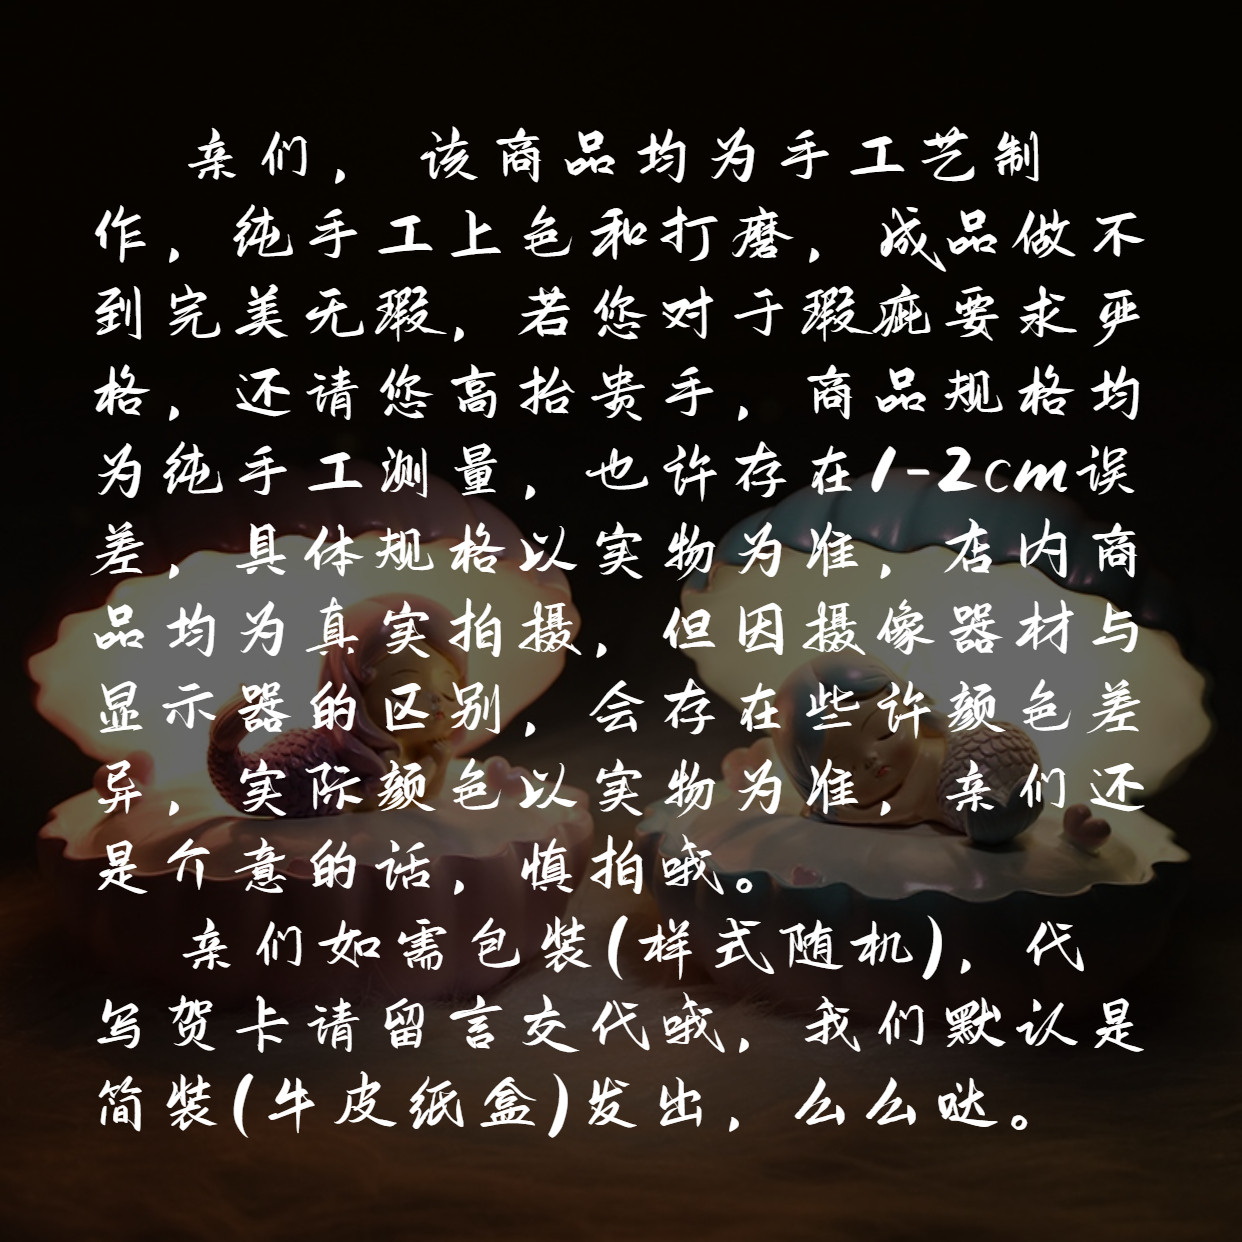 亲们，该商品均为手工艺制
作，纯手工上色和打磨，成品做不
到完美无瑕，若您对于瑕疵要求严
格，还请您高抬贵手，商品规格均
为纯手工测量，也许存在1-2cm误
差，具体规格以实物为准，店内商
品均为真实拍摄，但因摄像器材与
显示器的区别，会存在些许颜色差
异，实际颜色以实物为准，亲们还
是介意的话，慎拍哦。
亲们如需包装(样式随机)，代
写贺卡请留言交代哦，我们默认是
简装(牛皮纸盒)发出，么么哒。